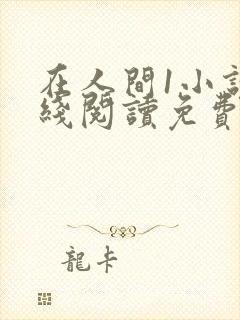 在人間1小説
綫閱讀免費
龍卡